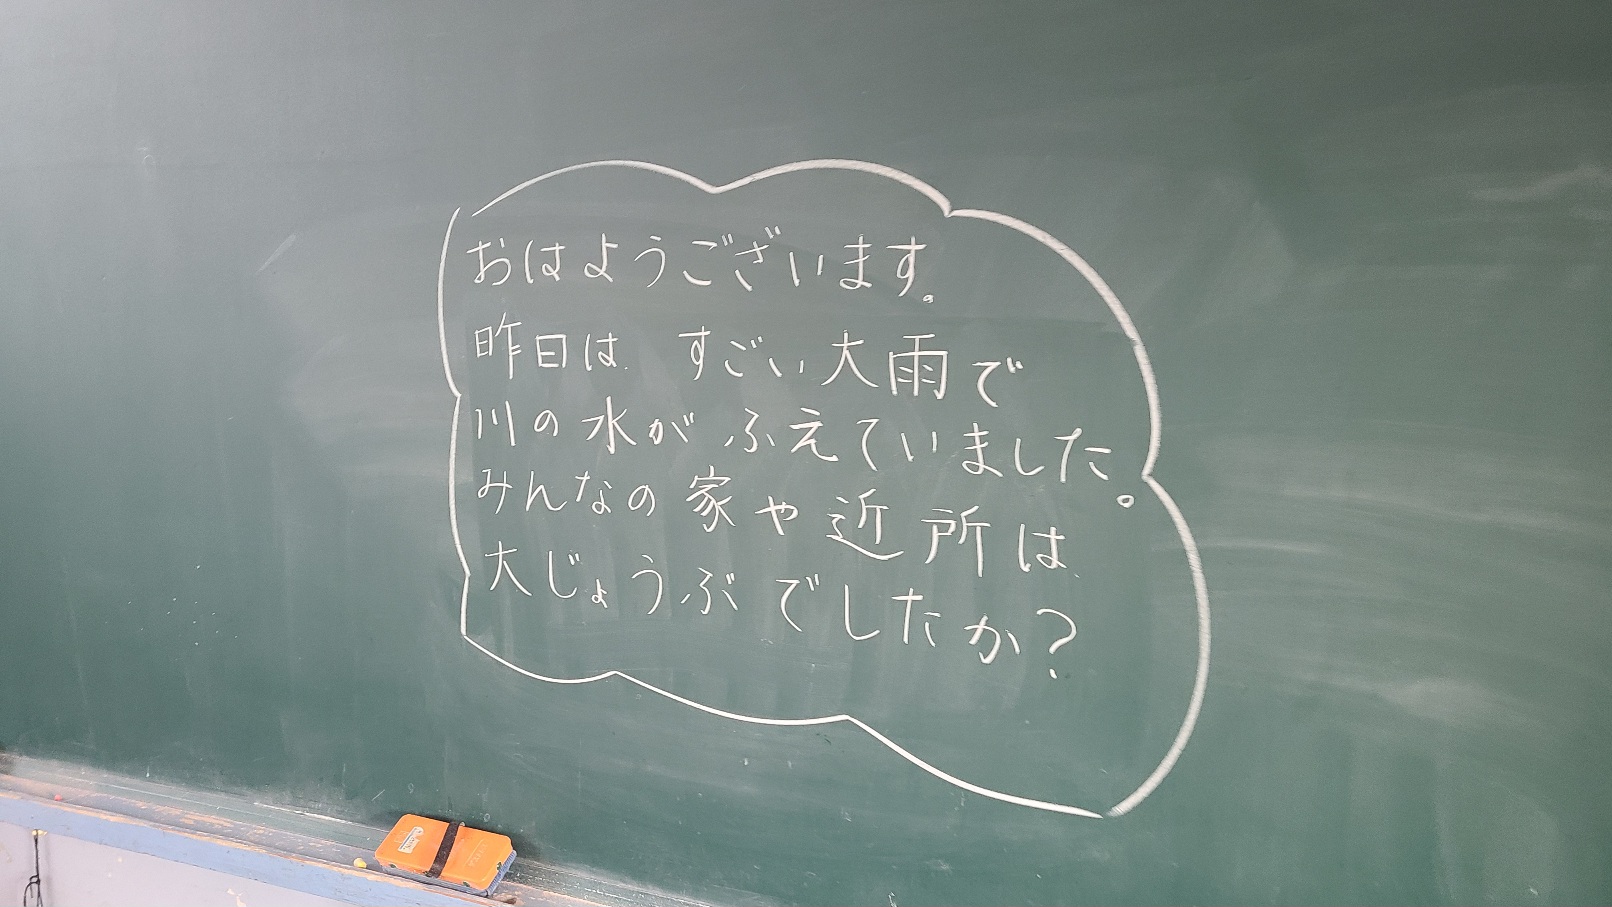 おはようございます。
昨日は すごい大雨で
川の水が ふえていました。
みんなの家や近所は
大じょうぶでしたか?